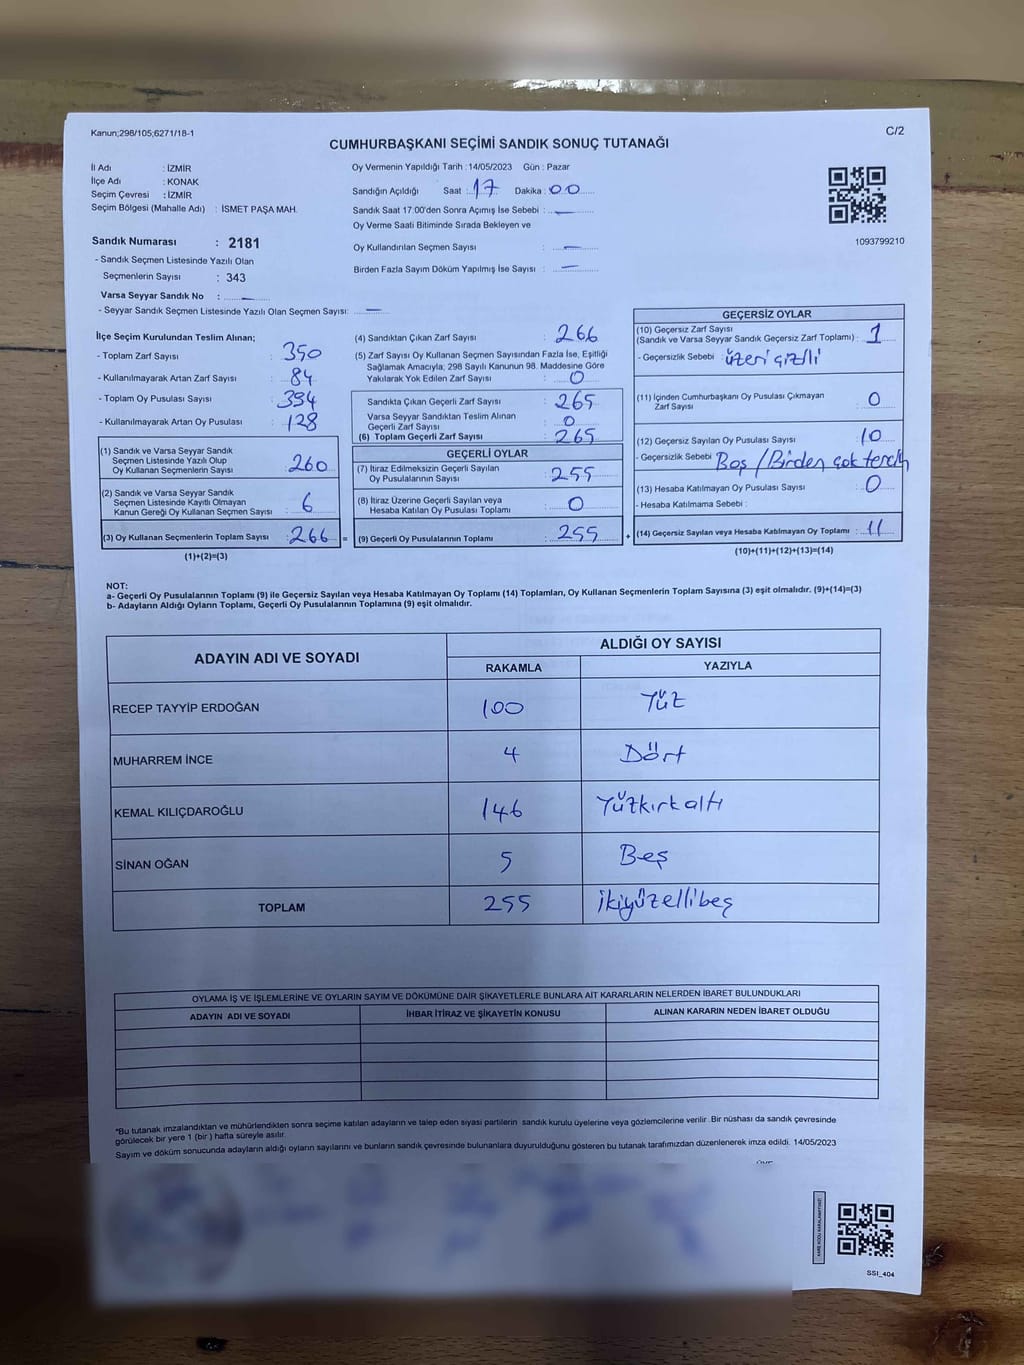 Kanun;298/105;6271/18-1
C/2
CUMHURBAŞKANI SEÇİMİ SANDIK SONUÇ TUTANAĞI
İl Adı : İZMİR
İlçe Adı : KONAK
Seçim Çevresi : İZMİR
Seçim Bölgesi (Mahalle Adı) : İSMET PAŞA MAH.
Oy Vermenin Yapıldığı Tarih : 14/05/2023 Gün : Pazar
Sandığın Açıldığı Saat : 17 Dakika : 00
Sandık Saat 17:00'den Sonra Açımış İse Sebebi : —
Oy Verme Saati Bitiminde Sırada Bekleyen ve
Oy Kullandırılan Seçmen Sayısı : —
Birden Fazla Sayım Döküm Yapılmış İse Sayısı : —
1093799210
Sandık Numarası : 2181
- Sandık Seçmen Listesinde Yazılı Olan
Seçmenlerin Sayısı : 343
Varsa Seyyar Sandık No : —
- Seyyar Sandık Seçmen Listesinde Yazılı Olan Seçmen Sayısı: —
İlçe Seçim Kurulundan Teslim Alınan;
- Toplam Zarf Sayısı : 350
- Kullanılmayarak Artan Zarf Sayısı : 84
- Toplam Oy Pusulası Sayısı : 394
- Kullanılmayarak Artan Oy Pusulası : 128
(1) Sandık ve Varsa Seyyar Sandık
Seçmen Listesinde Yazılı Olup
Oy Kullanan Seçmenlerin Sayısı : 260
(2) Sandık ve Varsa Seyyar Sandık
Seçmen Listesinde Kayıtlı Olmayan
Kanun Gereği Oy Kullanan Seçmen Sayısı : 6
(3) Oy Kullanan Seçmenlerin Toplam Sayısı : 266 =
(1)+(2)=(3)
(4) Sandıktan Çıkan Zarf Sayısı : 266
(5) Zarf Sayısı Oy Kullanan Seçmen Sayısından Fazla İse, Eşitliği
Sağlamak Amacıyla; 298 Sayılı Kanunun 98. Maddesine Göre
Yakılarak Yok Edilen Zarf Sayısı : 0
Sandıkta Çıkan Geçerli Zarf Sayısı : 265
Varsa Seyyar Sandıktan Teslim Alınan
Geçerli Zarf Sayısı : 0
(6) Toplam Geçerli Zarf Sayısı : 265
GEÇERLİ OYLAR
(7) İtiraz Edilmeksizin Geçerli Sayılan
Oy Pusulalarının Sayısı : 255
(8) İtiraz Üzerine Geçerli Sayılan veya
Hesaba Katılan Oy Pusulası Toplamı : 0
(9) Geçerli Oy Pusulalarının Toplamı : 255 +
GEÇERSİZ OYLAR
(10) Geçersiz Zarf Sayısı
(Sandık ve Varsa Seyyar Sandık Geçersiz Zarf Toplamı) : 1
- Geçersizlik Sebebi : üzeri çizili
(11) İçinden Cumhurbaşkanı Oy Pusulası Çıkmayan
Zarf Sayısı : 0
(12) Geçersiz Sayılan Oy Pusulası Sayısı : 10
- Geçersizlik Sebebi : Boş / Birden çok tercih
(13) Hesaba Katılmayan Oy Pusulası Sayısı : 0
- Hesaba Katılmama Sebebi :
(14) Geçersiz Sayılan veya Hesaba Katılmayan Oy Toplamı : 11
(10)+(11)+(12)+(13)=(14)
NOT:
a- Geçerli Oy Pusulalarının Toplamı (9) ile Geçersiz Sayılan veya Hesaba Katılmayan Oy Toplamı (14) Toplamları, Oy Kullanan Seçmenlerin Toplam Sayısına (3) eşit olmalıdır. (9)+(14)=(3)
b- Adayların Aldığı Oyların Toplamı, Geçerli Oy Pusulalarının Toplamına (9) eşit olmalıdır.
ADAYIN ADI VE SOYADI
ALDIĞI OY SAYISI
RAKAMLA YAZIYLA
RECEP TAYYİP ERDOĞAN 100 Yüz
MUHARREM İNCE 4 Dört
KEMAL KILIÇDAROĞLU 146 Yüzkırkaltı
SİNAN OĞAN 5 Beş
TOPLAM 255 ikiyüzellibeş
OYLAMA İŞ VE İŞLEMLERİNE VE OYLARIN SAYIM VE DÖKÜMÜNE DAİR ŞİKAYETLERLE BUNLARA AİT KARARLARIN NELERDEN İBARET BULUNDUKLARI
ADAYIN ADI VE SOYADI İHBAR İTİRAZ VE ŞİKAYETİN KONUSU ALINAN KARARIN NEDEN İBARET OLDUĞU
*Bu tutanak imzalandıktan ve mühürlendikten sonra seçime katılan adayların ve talep eden siyasi partilerin sandık kurulu üyelerine veya gözlemcilerine verilir. Bir nüshası da sandık çevresinde
görülecek bir yere 1 (bir) hafta süreyle asılır.
Sayım ve döküm sonucunda adayların aldığı oyların sayılarını ve bunların sandık çevresinde bulunanlara duyurulduğunu gösteren bu tutanak tarafımızdan düzenlenerek imza edildi. 14/05/2023
KARE KODU KARALAMAYINIZ!
SSI_404